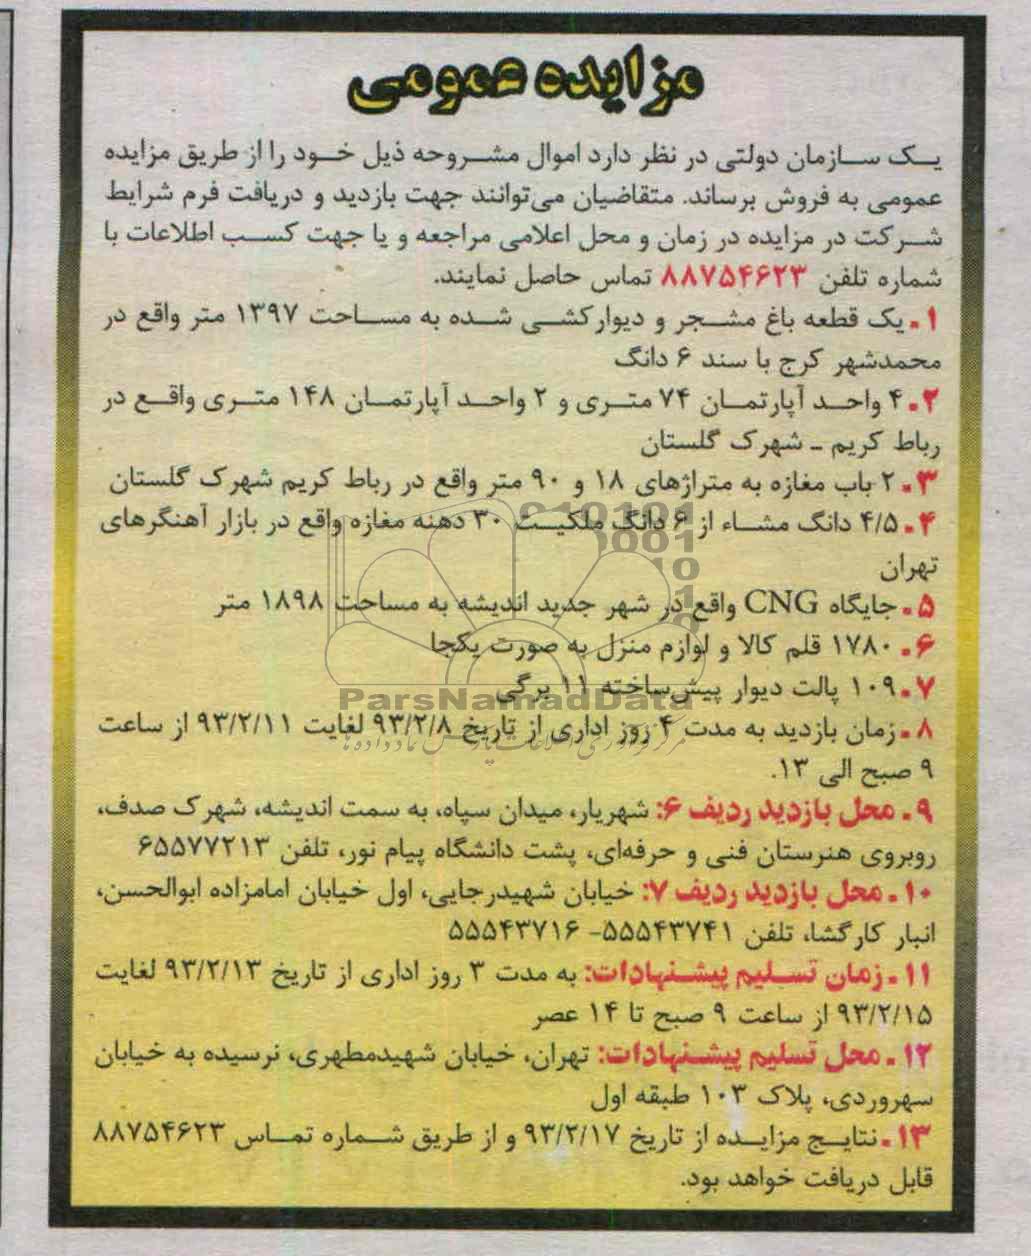 مزایده عمومی
یک سازمان دولتی در نظر دارد اموال مشروحه ذیل خود را از طریق مزایده
عمومی به فروش برساند. متقاضیان می‌توانند جهت بازدید و دریافت فرم شرایط
شرکت در مزایده در زمان و محل اعلامی مراجعه و یا جهت کسب اطلاعات با
شماره تلفن ۸۸۷۵۴۶۲۳ تماس حاصل نمایند.
۱ـ یک قطعه باغ مشجر و دیوارکشی شده به مساحت ۱۳۹۷ متر واقع در
محمدشهر کرج با سند ۶ دانگ
۲ـ ۴ واحد آپارتمان ۷۴ متری و ۲ واحد آپارتمان ۱۴۸ متری واقع در
رباط کریم ـ شهرک گلستان
۳ـ ۲ باب مغازه به متراژهای ۱۸ و ۹۰ متر واقع در رباط کریم شهرک گلستان
۴ـ ۴/۵ دانگ مشاء از ۶ دانگ ملکیت ۳۰ دهنه مغازه واقع در بازار آهنگرهای
تهران
۵ـ جایگاه CNG واقع در شهر جدید اندیشه به مساحت ۱۸۹۸ متر
۶ـ ۱۷۸۰ قلم کالا و لوازم منزل به صورت یکجا
۷ـ ۱۰۹ پالت دیوار پیش‌ساخته ۱۱ برگی
ParsNamadData
۸ـ زمان بازدید به مدت ۴ روز اداری از تاریخ ۹۳/۲/۸ لغایت ۹۳/۲/۱۱ از ساعت
۹ صبح الی ۱۳.
۹ـ محل بازدید ردیف ۶: شهریار، میدان سپاه، به سمت اندیشه، شهرک صدف،
روبروی هنرستان فنی و حرفه‌ای، پشت دانشگاه پیام نور، تلفن ۶۵۵۷۷۲۱۳
۱۰ـ محل بازدید ردیف ۷: خیابان شهیدرجایی، اول خیابان امامزاده ابوالحسن،
انبار کارگشا، تلفن ۵۵۵۴۳۷۴۱- ۵۵۵۴۳۷۱۶
۱۱ـ زمان تسلیم پیشنهادات: به مدت ۳ روز اداری از تاریخ ۹۳/۲/۱۳ لغایت
۹۳/۲/۱۵ از ساعت ۹ صبح تا ۱۴ عصر
۱۲ـ محل تسلیم پیشنهادات: تهران، خیابان شهیدمطهری، نرسیده به خیابان
سهروردی، پلاک ۱۰۳ طبقه اول
۱۳ـ نتایج مزایده از تاریخ ۹۳/۲/۱۷ و از طریق شماره تماس ۸۸۷۵۴۶۲۳
قابل دریافت خواهد بود.